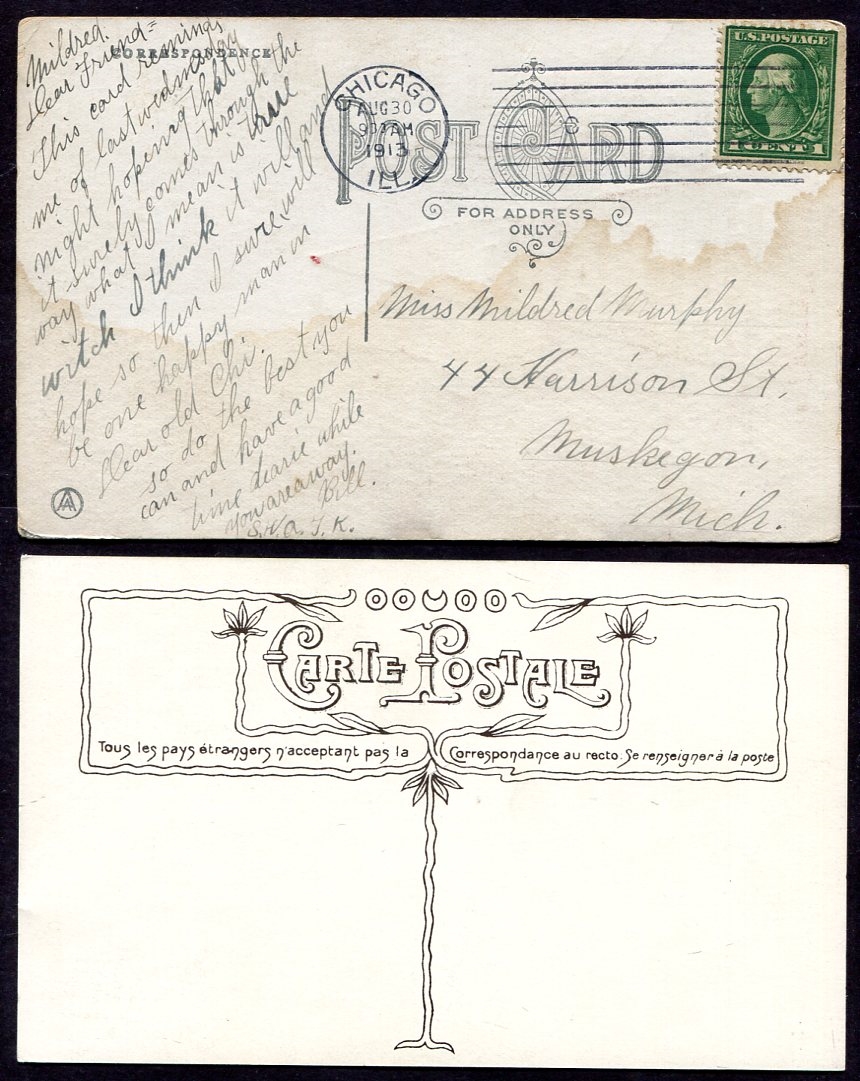 CORRESPONDENCE
Mildred.
Dear Friend=
This card reminds
me of last wednesday
night hopeing that
it surely comes through the
way what I mean is true
witch I think it will and
hope so then I sure will
be one happy man in
Dear old Chi.
so do the best you
can and have a good
time dearie while
you are away.
Bill.
S.W.A.T.K.
CHICAGO
AUG 30
9 AM
1913
ILL.
POST CARD
FOR ADDRESS
ONLY
U.S. POSTAGE
1 CENT 1
Miss Mildred Murphy
44 Harrison St.
Muskegon,
Mich.
CARTE POSTALE
Tous les pays étrangers n'acceptant pas la Correspondance au recto. Se renseigner à la poste